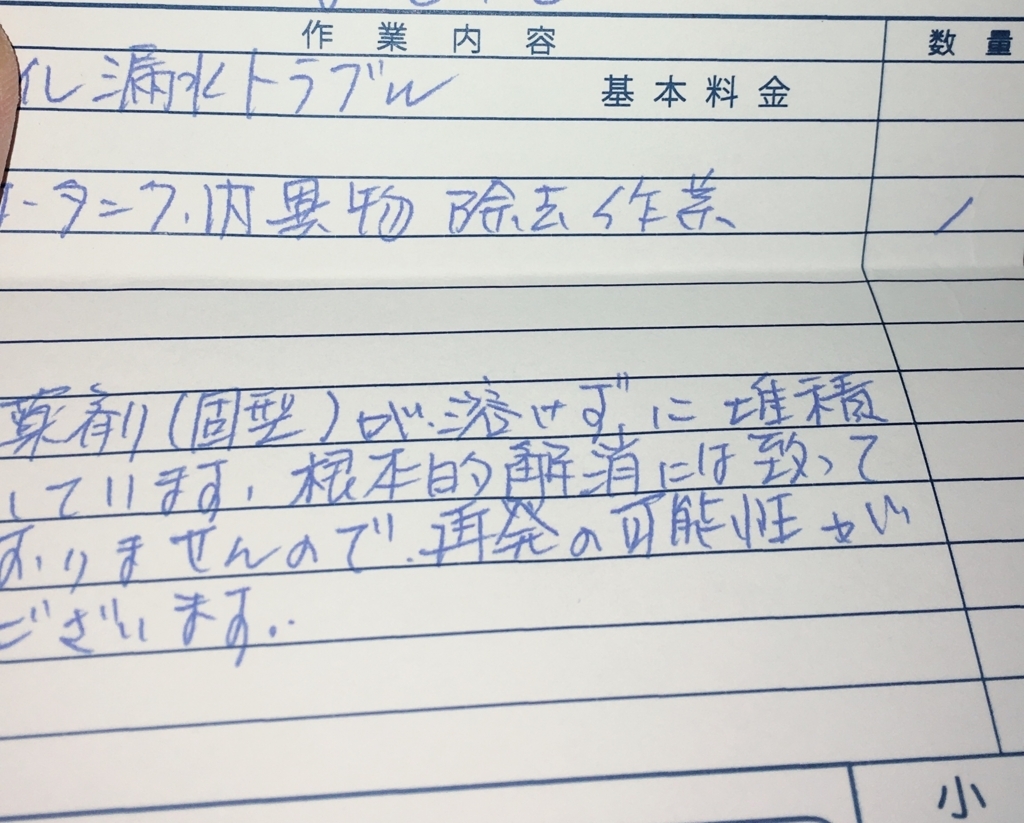 作業内容 数量
イレ漏水トラブル 基本料金
ータンク内異物除去作業 1
薬剤(固型)が溶けずに堆積
しています。根本的解消には致って
おりませんので、再発の可能性が
ございます。
小